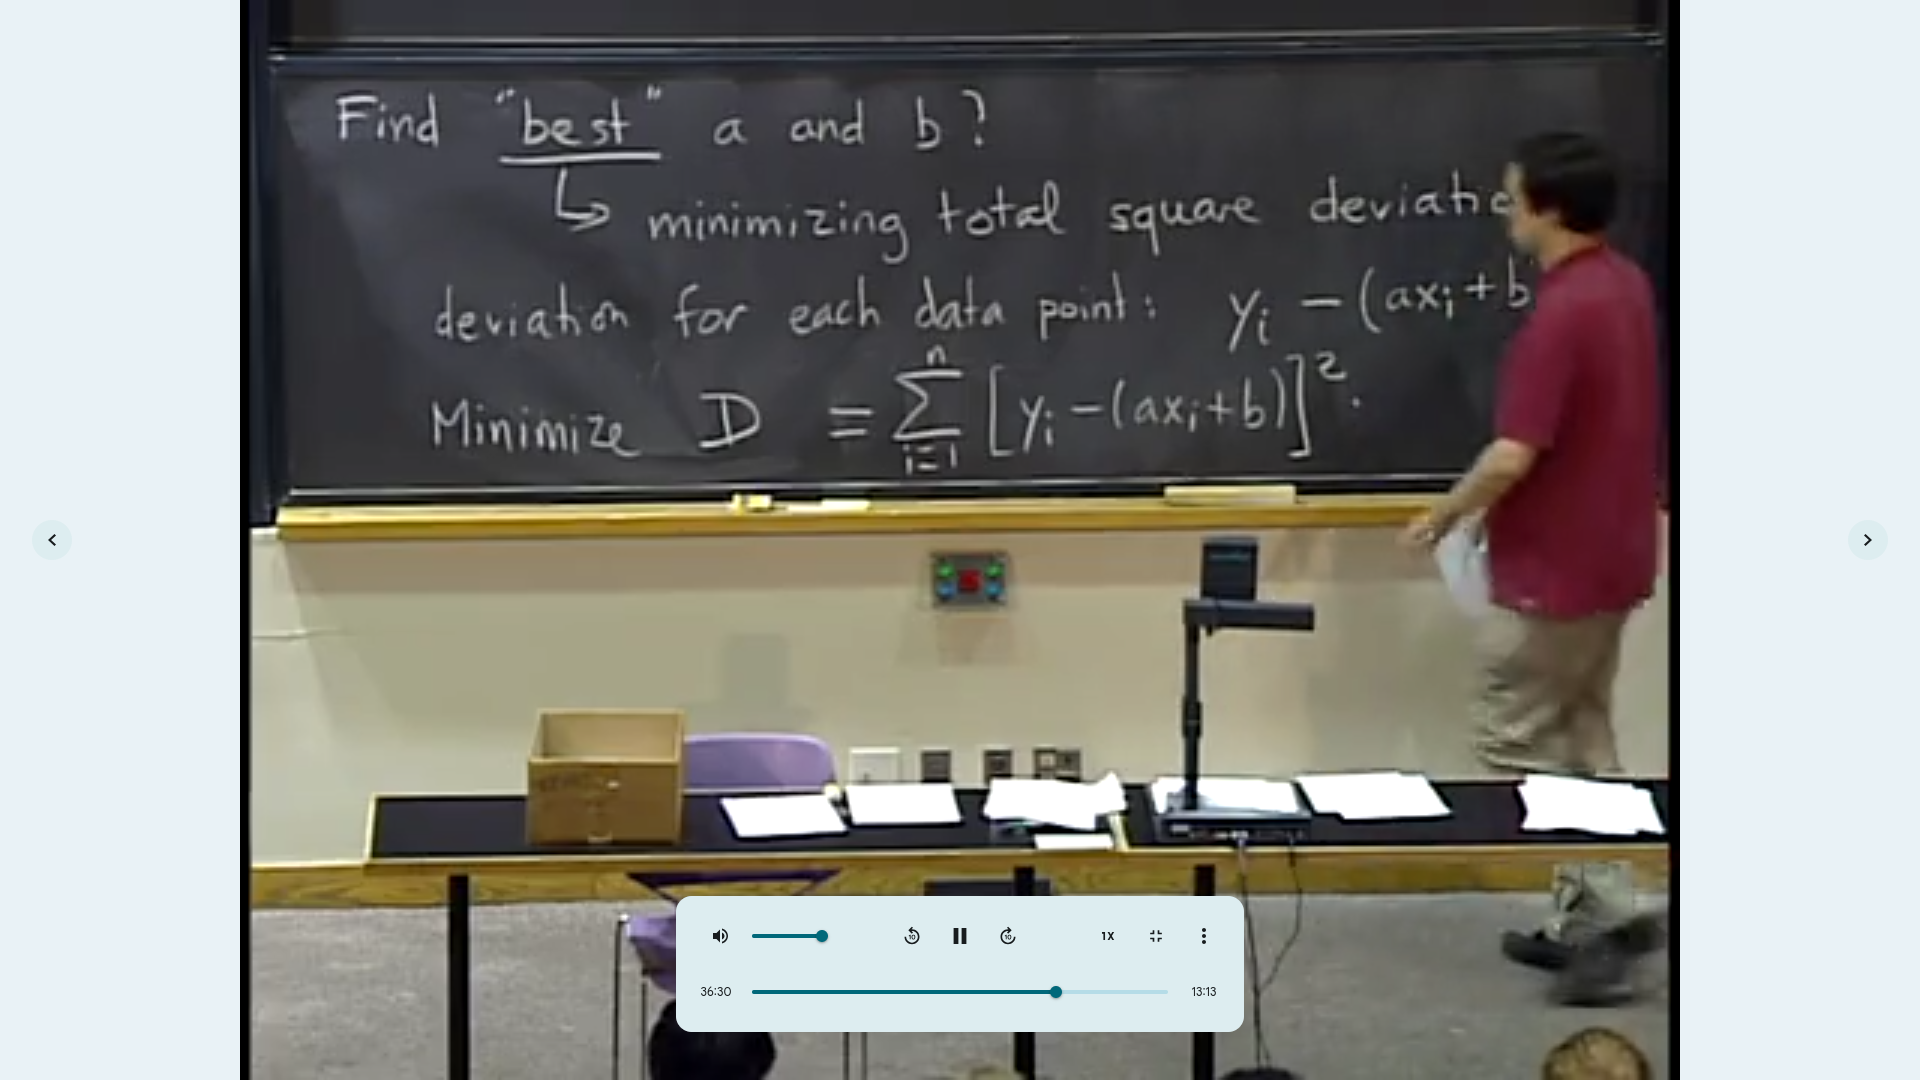 Find "best" a and b?
↳ minimizing total square
deviation for each data point: yᵢ - (axᵢ+b
Minimize D ≡ ∑ᵢ₌₁ⁿ [yᵢ-(axᵢ+b)]².
1X
36:30 13:13